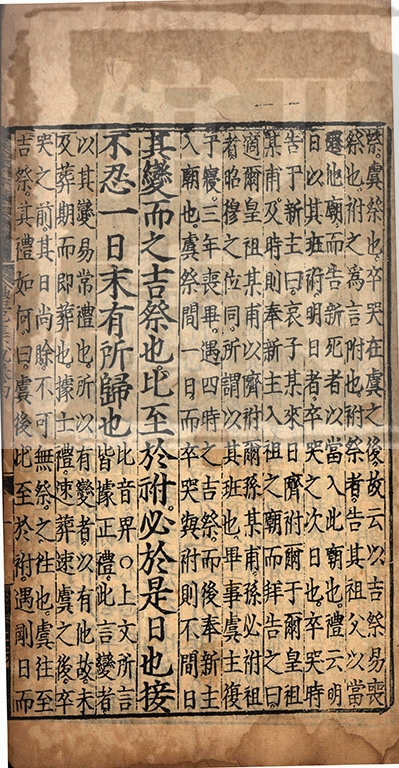 祭虞祭也卒哭在虞之後故云以吉祭易喪
祭也祔之為言附也祔祭者告其祖父以當
遷他廟而告新死者以當入此廟也禮云明
日以其班祔明日者卒哭之次日也卒哭時
告于新主曰哀子某來日隮祔爾于爾皇祖
某甫及時則奉新主入祖之廟而拜告之曰
適爾皇祖某甫以隮祔爾孫某甫孫必祔祖
者昭穆之位同所謂以其班也畢事虞主復
于寢三年喪畢遇四時之吉祭而後奉新主
入廟也虞祭間一日而卒哭與祔則不間日
其變而之吉祭也比至於祔必於是日也接
不忍一日末有所歸也
比音界○上文所言
皆據正禮此言變者
以其變易常禮也所以有變者以有他故未
及葬期而即葬也據士禮速葬速虞之後卒
哭之前其日尚賒不可無祭之往也虞往至
吉祭其禮如何曰虞後比至於祔遇剛日而